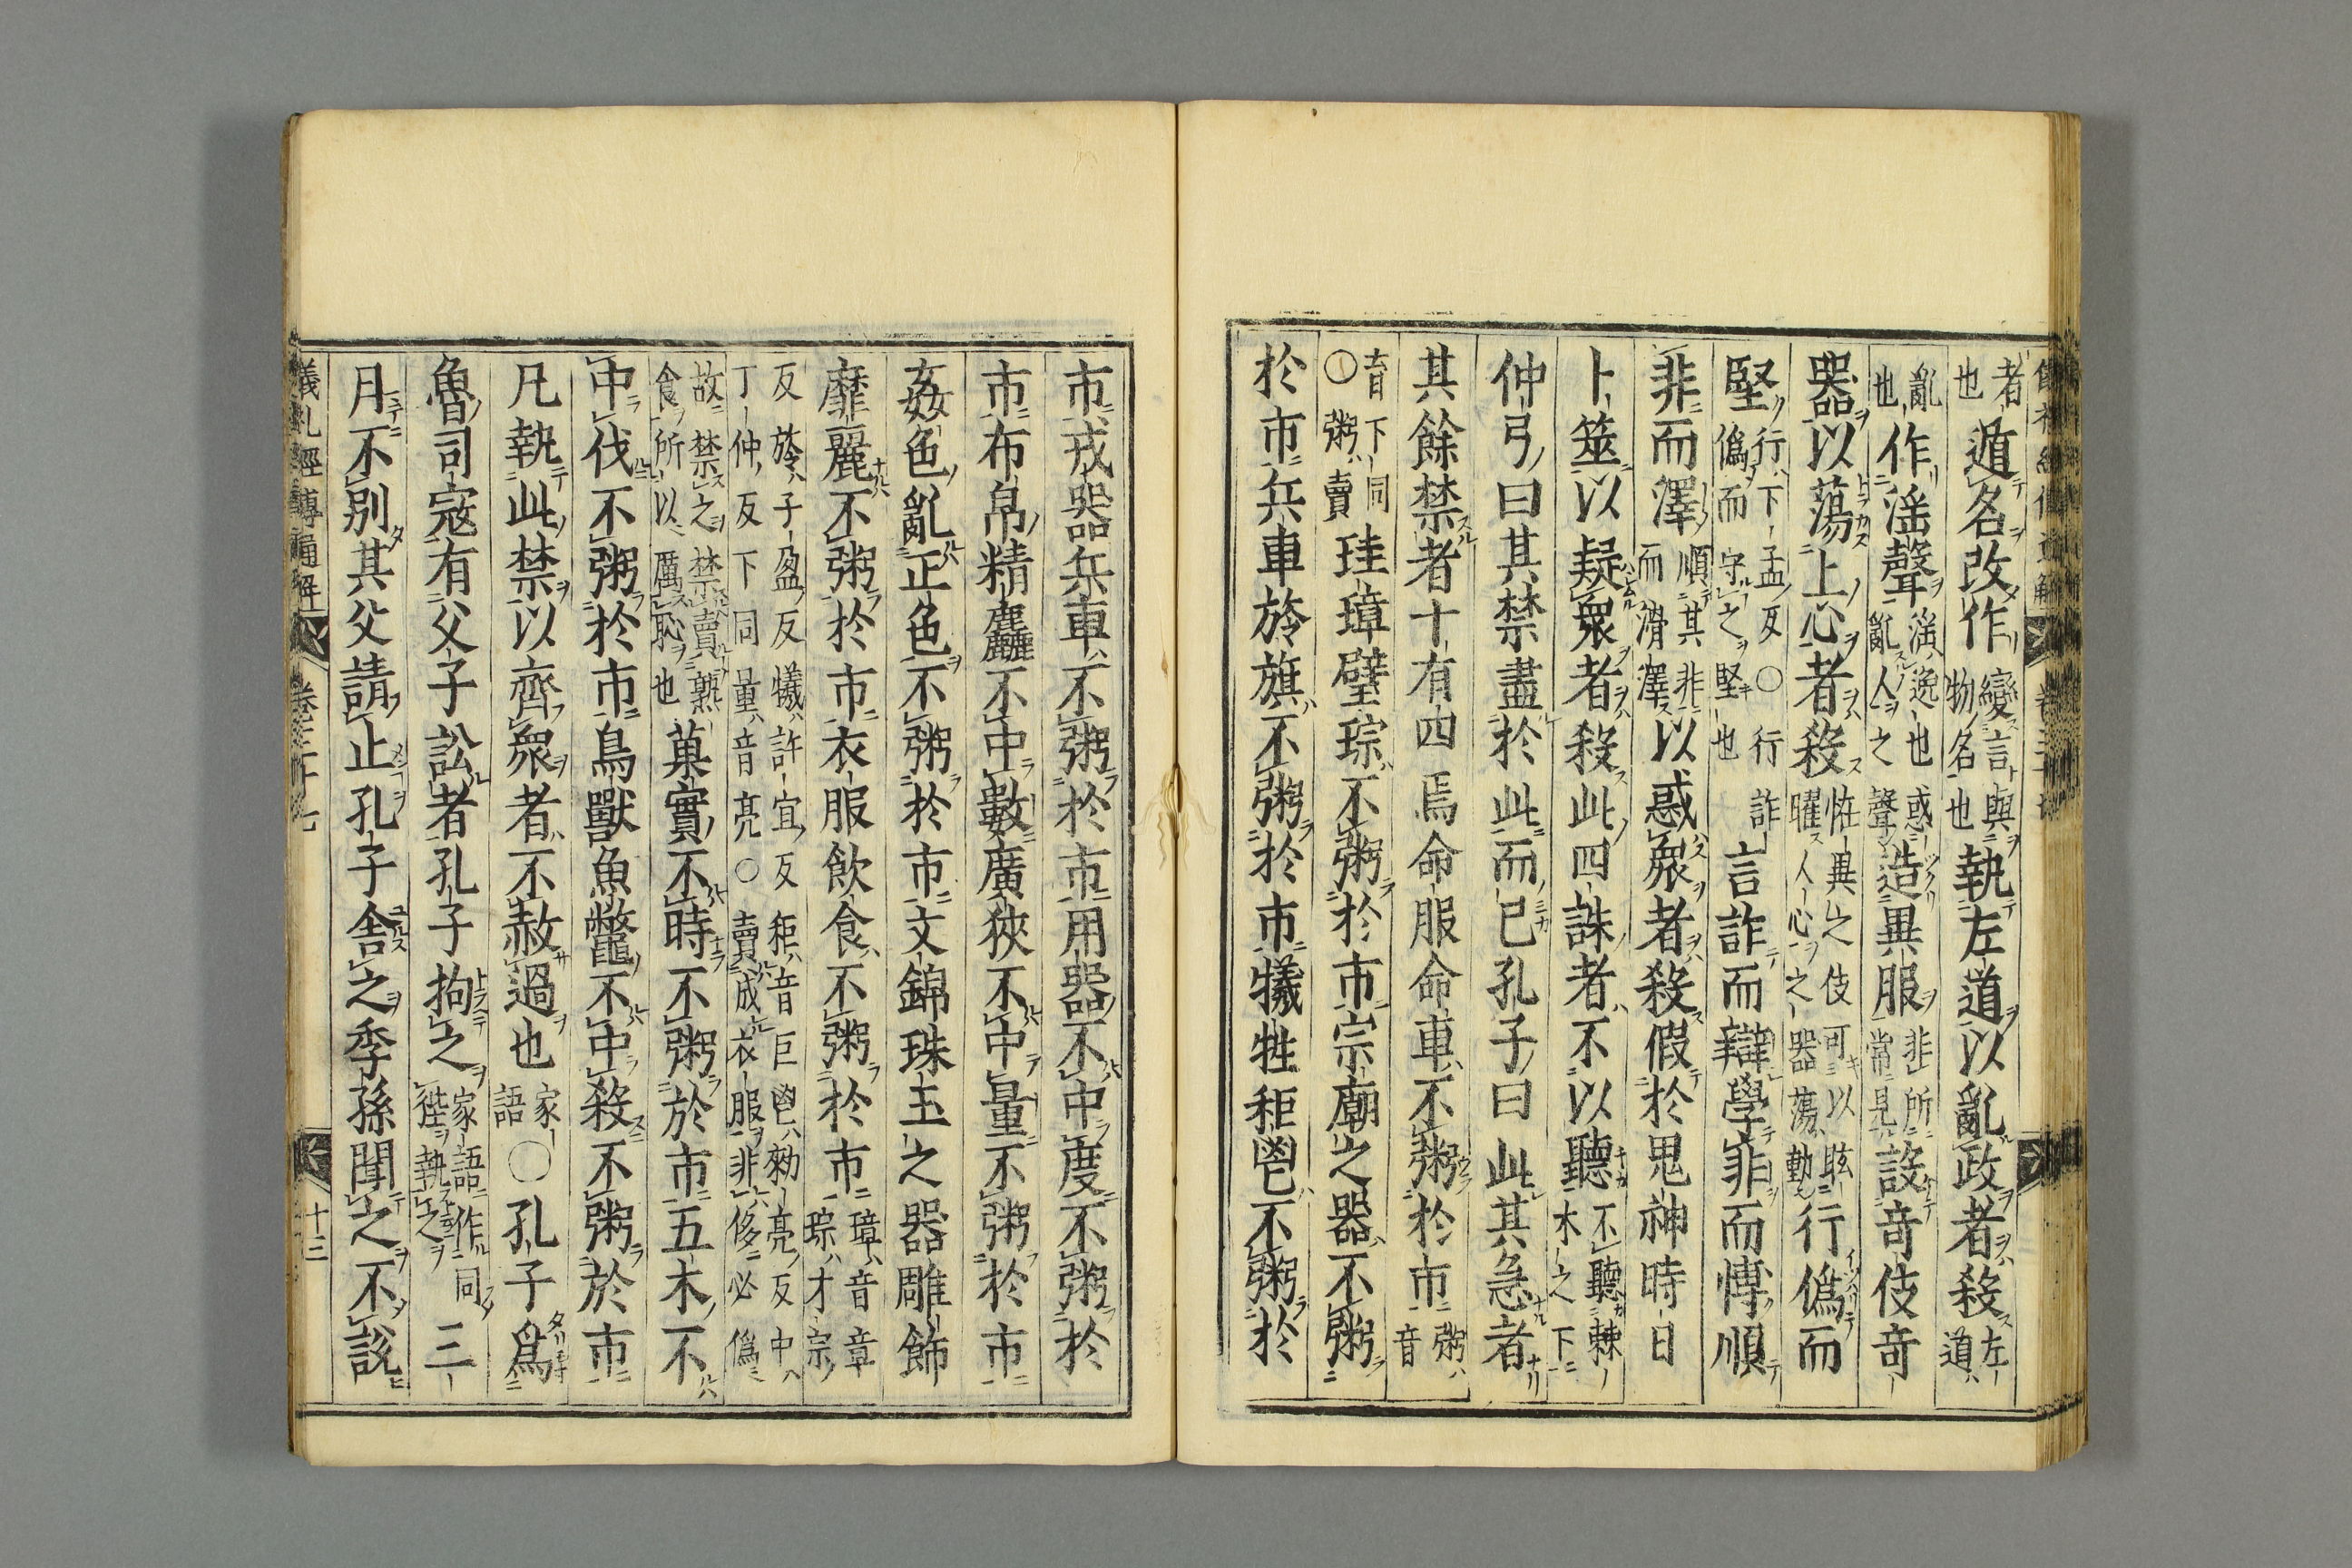 者也遁名改作變言與物名也執左道以亂政者殺左道
亂也作滛聲滛逸也惑亂人之聲造異服非所常見設竒伎竒
器以蕩上心者殺怪異之伎可以眩曜人心之器蕩動行偽而
堅行下孟反○行偽而守之堅也詐言詐而辯學非而愽順
非而澤順其非而滑澤以惑衆者殺假於鬼神時日
卜筮以疑衆者殺此四誅者不以聽不聽棘木之下
仲弓曰其禁盡於此而已孔子曰此其急者
其餘禁者十有四焉命服命車不粥於市粥音
育下同○粥賣珪璋璧琮不粥於市宗廟之器不粥
於市兵車旍旗不粥於市犧牲秬鬯不粥於
市戎器兵車不粥於市用器不中度不粥於
市布帛精麤不中數廣狹不中量不粥於市
姦色亂正色不粥於市文錦珠玉之器雕飾
靡麗不粥於市衣服飲食不粥於市璋音章琮才宗
反旍子盈反犧許宜反秬音巨鬯勑亮反中丁仲反下同量音亮○賣成衣服非侈必偽
故禁之禁賣熟食所以厲恥也菓實不時不粥於市五木不
中伐不粥於市鳥獸魚鼈不中殺不粥於市
凡執此禁以齊衆者不赦過也家語○孔子爲
魯司寇有父子訟者孔子拘之家語作同狴執之三
月不別其父請止孔子舎之季孫聞之不說
儀礼經傳通解 卷三十七 十三